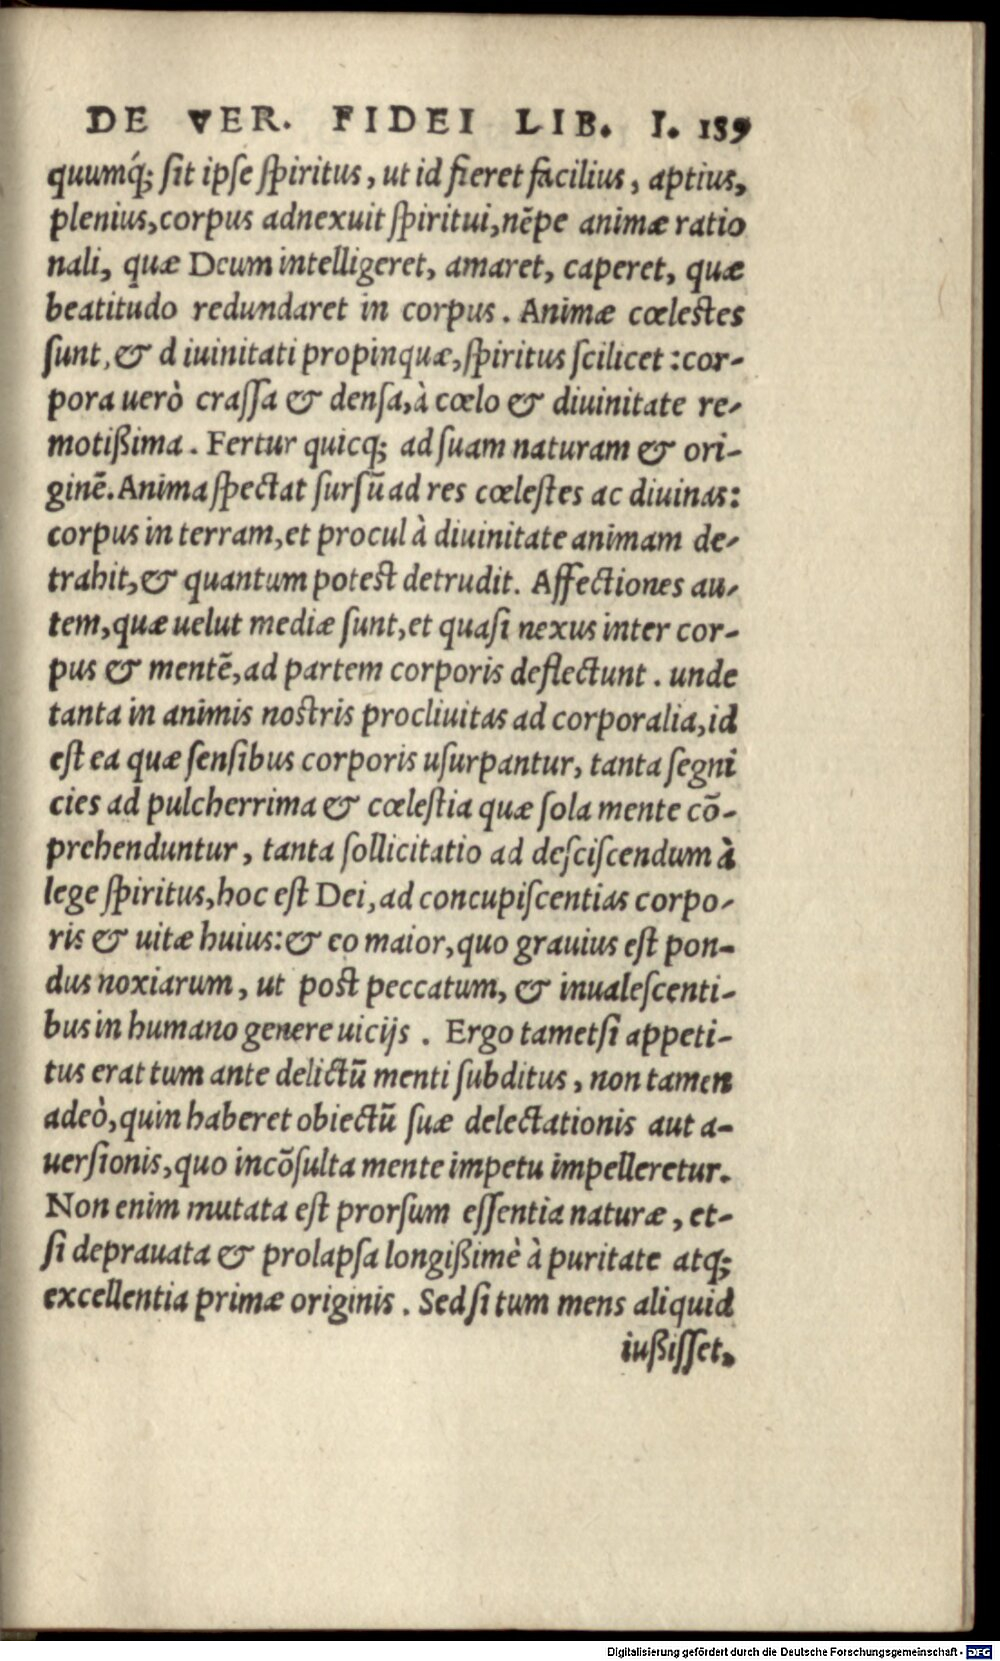 DE VER. FIDEI LIB. I. 159
quumq́; ſit ipſe ſpiritus, ut id fieret facilius, aptius,
plenius, corpus adnexuit ſpiritui, nẽpe animæ ratio
nali, quæ Deum intelligeret, amaret, caperet, quæ
beatitudo redundaret in corpus. Animæ cœleſtes
ſunt, & d iuinitati propinquæ, ſpiritus ſcilicet: cor-
pora uerò craſſa & denſa, à cœlo & diuinitate re-
motißima. Fertur quicq; ad ſuam naturam & ori-
ginẽ. Anima ſpectat ſurſũ ad res cœleſtes ac diuinas:
corpus in terram, et procul à diuinitate animam de-
trahit, & quantum poteſt detrudit. Affectiones au-
tem, quæ uelut mediæ ſunt, et quaſi nexus inter cor-
pus & mentẽ, ad partem corporis deflectunt. unde
tanta in animis noſtris procliuitas ad corporalia, id
eſt ea quæ ſenſibus corporis uſurpantur, tanta ſegni
cies ad pulcherrima & cœleſtia quæ ſola mente cõ-
prehenduntur, tanta ſollicitatio ad deſciſcendum à
lege ſpiritus, hoc eſt Dei, ad concupiſcentias corpo-
ris & uitæ huius: & eo maior, quo grauius eſt pon-
dus noxiarum, ut poſt peccatum, & inualeſcenti-
bus in humano genere uicijs. Ergo tametſi appeti-
tus erat tum ante delictũ menti ſubditus, non tamen
adeò, quin haberet obiectũ ſuæ delectationis aut a-
uerſionis, quo incõſulta mente impetu impelleretur.
Non enim mutata eſt prorſum eſſentia naturæ, et-
ſi deprauata & prolapſa longißimè à puritate atq;
excellentia primæ originis. Sed ſi tum mens aliquid
iußiſſet,
Digitalisierung gefördert durch die Deutsche Forschungsgemeinschaft - DFG